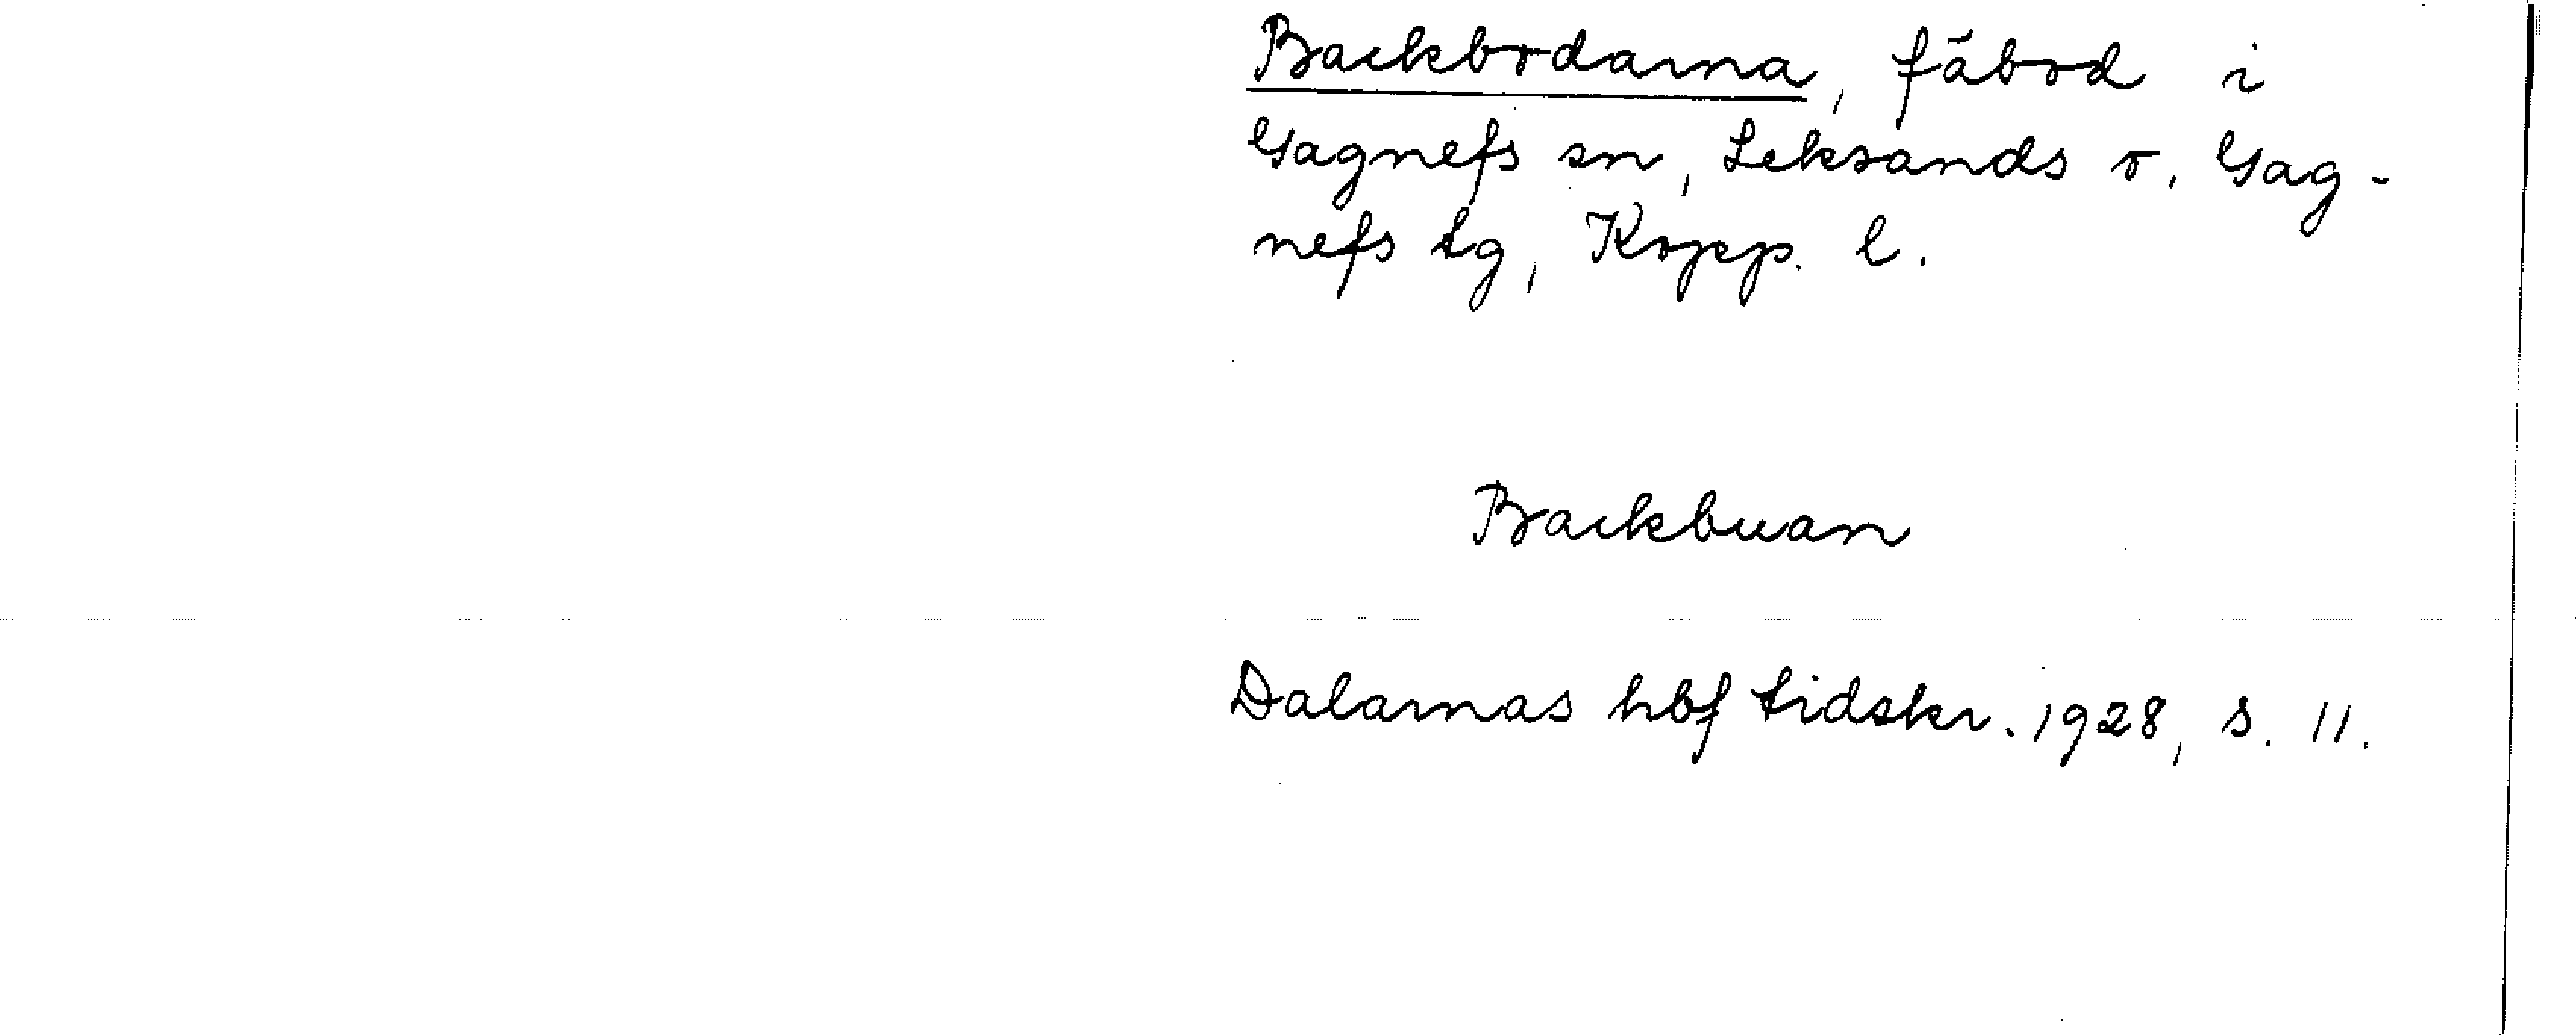 Backbodarna, fäbod i
Gagnefs sn, Leksands o. Gag-
nefs tg, Kopp. l.
Backbuan
Dalarnas hbf tidskr. 1928, s. 11.